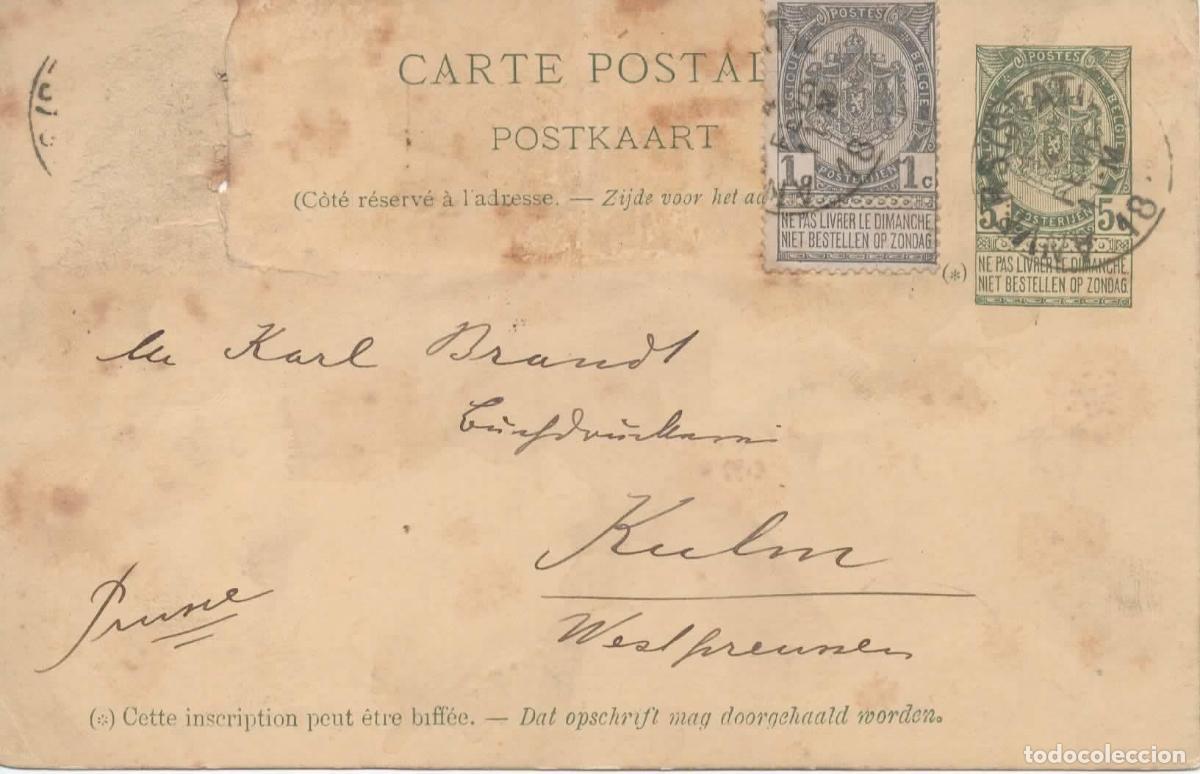 CARTE POSTAL
POSTKAART
(Côté réservé à l'adresse. — Zijde voor het
POSTES
BELGIQUE BELGIË
1c 1c
POSTERIJEN
NE PAS LIVRER LE DIMANCHE
NIET BESTELLEN OP ZONDAG
POSTES
5c POSTERIJEN 5c
NE PAS LIVRER LE DIMANCHE.
NIET BESTELLEN OP ZONDAG.
(*)
An Karl Brandt
Buchdruckerei
Kulm
Prusse
Westpreussen
(*) Cette inscription peut être biffée. — Dat opschrift mag doorgehaald worden.
todocoleccion